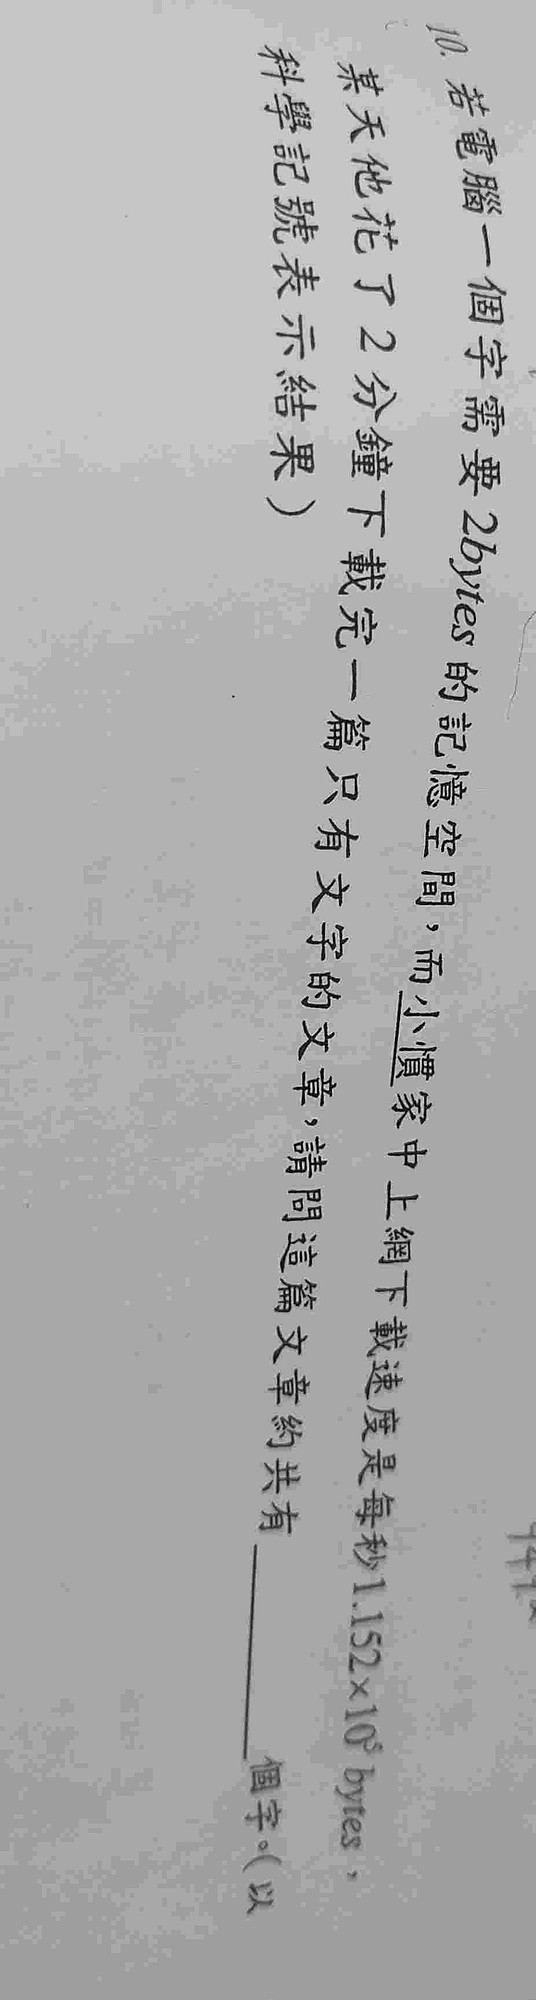 10. 若電腦一個字需要2bytes的記憶空間，而小慣家中上網下載速度是每秒1.152×10⁵ bytes，
某天他花了2分鐘下載完一篇只有文字的文章，請問這篇文章約共有________個字。(以
科學記號表示結果)